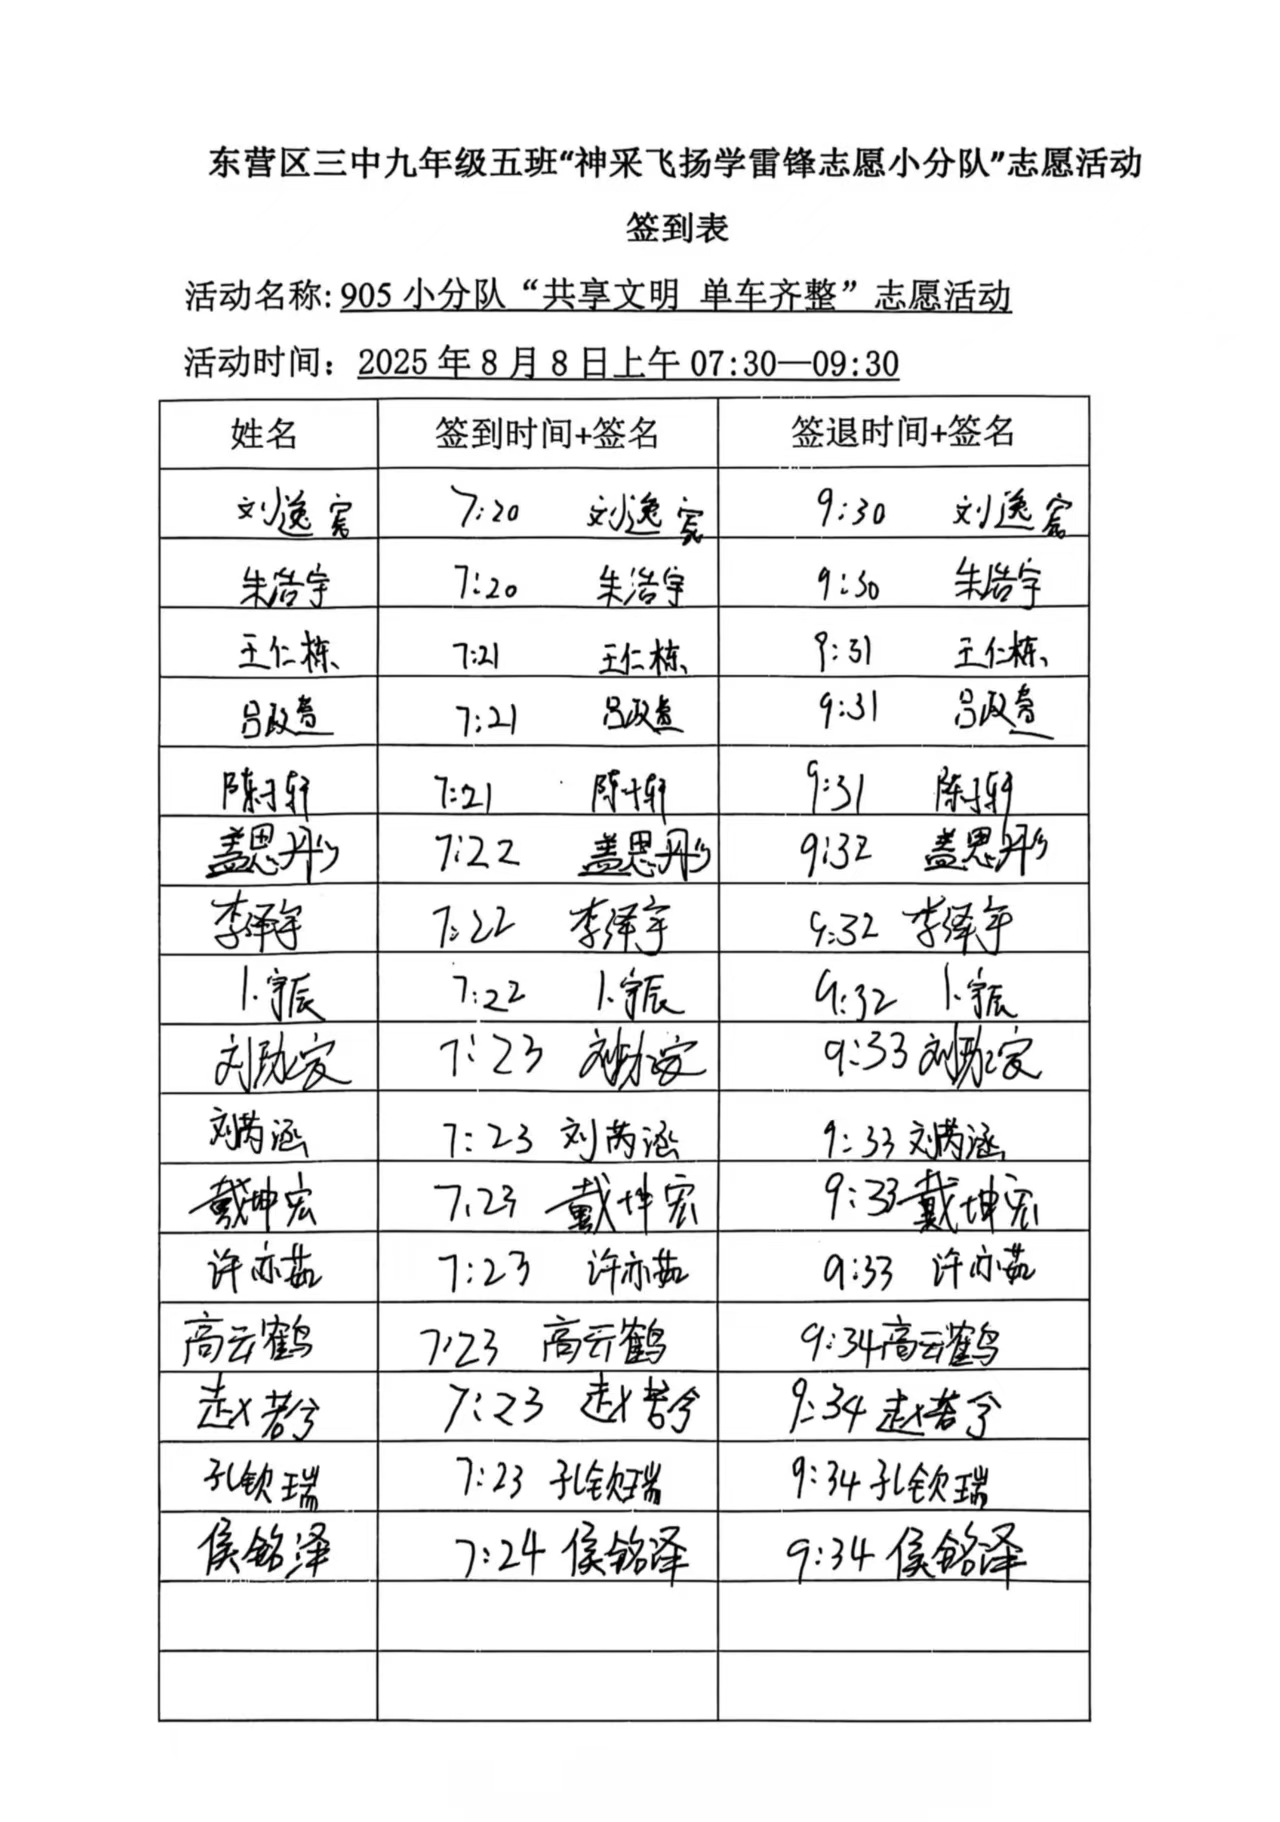 东营区三中九年级五班“神采飞扬学雷锋志愿小分队”志愿活动
签到表
活动名称:905 小分队“共享文明 单车齐整”志愿活动
活动时间：2025 年 8 月 8 日上午 07:30—09:30
姓名 签到时间+签名 签退时间+签名
刘逸宸 7:20 刘逸宸 9:30 刘逸宸
朱浩宇 7:20 朱浩宇 9:30 朱浩宇
王仁栋 7:21 王仁栋 9:31 王仁栋
吕政 7:21 吕政 9:31 吕政
陈子轩 7:21 陈子轩 9:31 陈子轩
盖思彤 7:22 盖思彤 9:32 盖思彤
李泽宇 7:22 李泽宇 9:32 李泽宇
卜宇辰 7:22 卜宇辰 9:32 卜宇辰
刘 7:23 刘 9:33 刘
刘芮涵 7:23 刘芮涵 9:33 刘芮涵
戴坤宏 7:23 戴坤宏 9:33 戴坤宏
许亦茹 7:23 许亦茹 9:33 许亦茹
高云鹤 7:23 高云鹤 9:34 高云鹤
赵若兮 7:23 赵若兮 9:34 赵若兮
孔钦瑞 7:23 孔钦瑞 9:34 孔钦瑞
侯铭泽 7:24 侯铭泽 9:34 侯铭泽